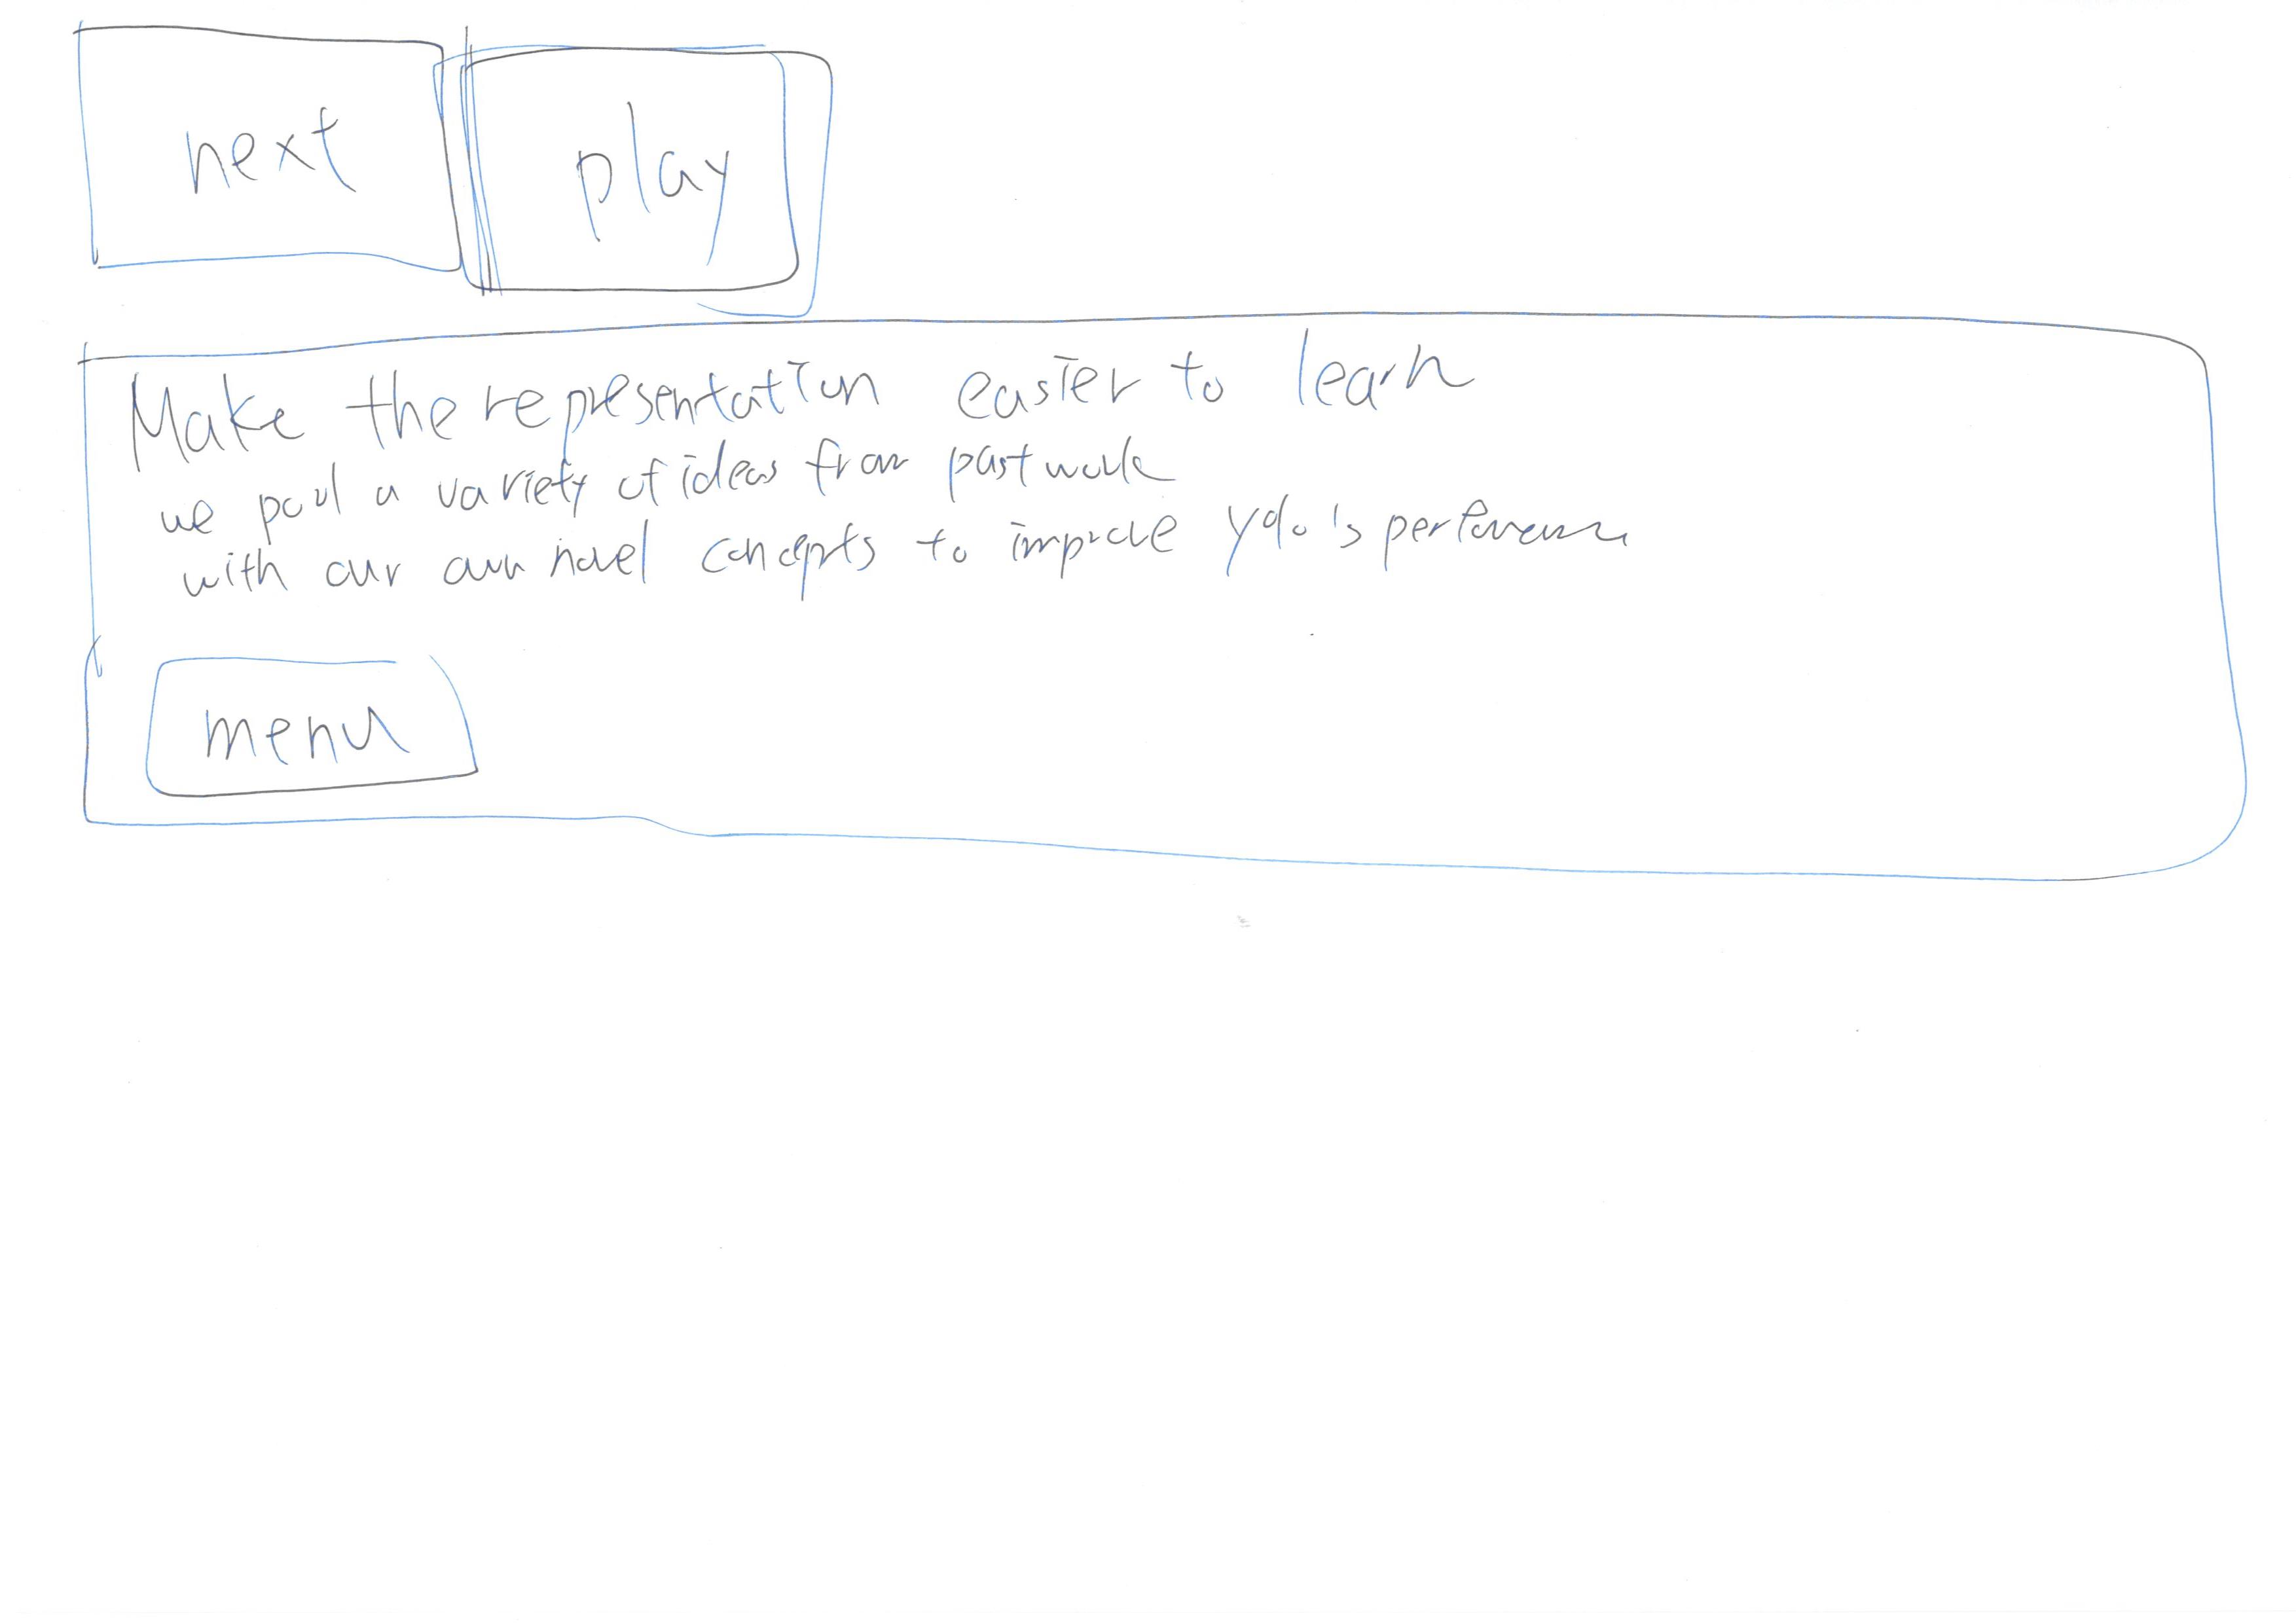 next
play
Make the representation easier to learn
we pool a variety of ideas from past work
with our own novel concepts to improve yolo's performance
menu